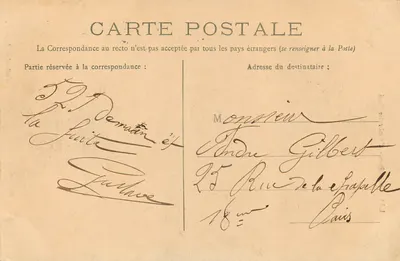 CARTE POSTALE
La Correspondance au recto n'est pas acceptée pas tous les pays étrangers (se renseigner à la Poste)
Partie réservée à la correspondance :
Adresse du destinataire ;
52 Demain et
la suite
Gustave
Monsieur
Andre Gilbert
25 Rue de la Chapelle
18eme
Paris